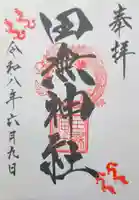 奉拝
田無神社
令和八年六月九日